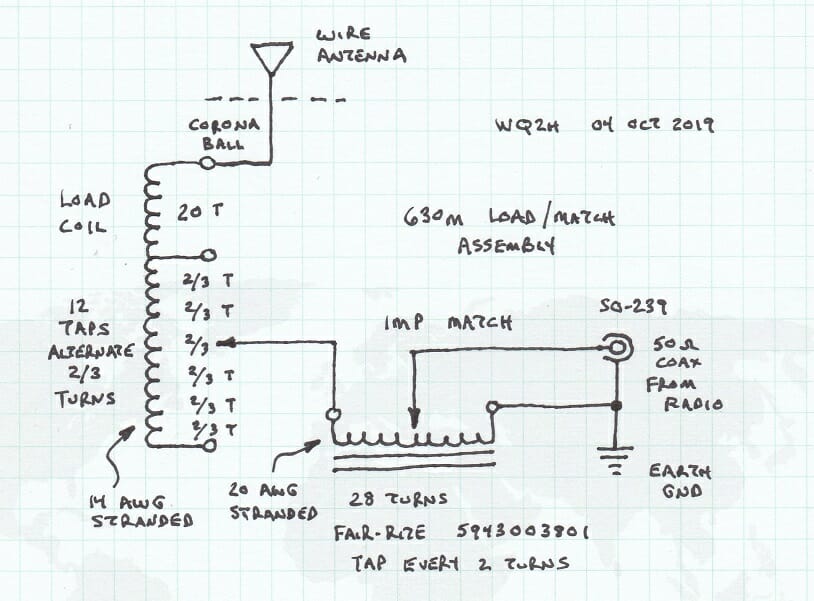 WIRE
ANTENNA
CORONA
BALL
WQ2H 04 OCT 2019
LOAD
COIL
20 T
630M LOAD/MATCH
ASSEMBLY
2/3 T
2/3 T
2/3
2/3 T
2/3 T
2/3 T
12
TAPS
ALTERNATE
2/3
TURNS
IMP MATCH
SO-239
50Ω
COAX
FROM
RADIO
EARTH
GND
14 AWG
STRANDED
20 AWG
STRANDED
28 TURNS
FAIR-RITE 5943003801
TAP EVERY 2 TURNS